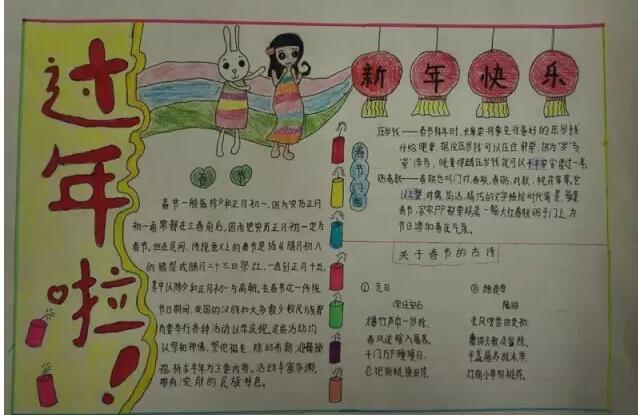 过年啦！
新年快乐
春节
春节一般指除夕和正月初一。因为农历正月
初一通常都在立春前后，因而把农历正月初一定为
春节。但在民间，传统意义上的春节是指从腊月初八
的腊祭或腊月二十三日祭灶，一直到正月十五，
其中以除夕和正月初一为高潮。在春节这一传统
节日期间，我国的汉族和大多数少数民族都
有要举行各种活动以示庆祝。这些活动均
以祭祀神佛、祭佗祖先、除旧布新、迎禧接
福、祈求丰年为主要内容。活动丰富多彩，
带有浓郁的民族特色。
春节习俗
压岁钱——春节拜年时，长辈要将事先准备好的压岁钱
分给晚辈，据说压岁钱可以压住邪祟，因为"岁"与
"祟"谐音，晚辈得到压岁钱就可以平平安安度过一岁。
贴春联——春联也叫门对、春联、春贴、对联、桃符等等。它
以工整、对偶、简洁、精巧的文字描绘时代背景，每逢
春节，家家户户都要精选一幅大红春联贴于门上，为
节日增加喜庆气氛。
关于春节的古诗
① 元日
宋王安石
爆竹声中一岁除，
春风送暖入屠苏。
千门万户曈曈日，
总把新桃换旧符。
② 除夜雪
陆游
北风吹雪四更初，
嘉瑞天教及岁除。
半盏屠苏犹未举，
灯前小草写桃符。